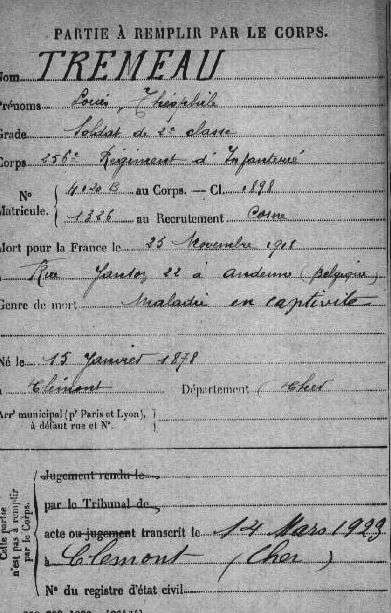 PARTIE À REMPLIR PAR LE CORPS.
Nom TREMEAU
Prénoms Louis, Théophile
Grade Soldat de 2e classe
Corps 256e Régiment d'Infanterie
N° Matricule. { 4020 B au Corps. — Cl. 1898
1326 au Recrutement Cosne
Mort pour la France le 25 Novembre 1918
à Rue 22 à Andenne (Belgique)
Genre de mort Maladie en captivité
Né le 15 Janvier 1878
à Clémont Département Cher
Arrt municipal (pr Paris et Lyon),
à défaut rue et N°.
Cette partie n'est pas à remplir par le Corps.
Jugement rendu le
par le Tribunal de
acte ou jugement transcrit le 14 Mars 1923
à Clémont (Cher)
N° du registre d'état civil